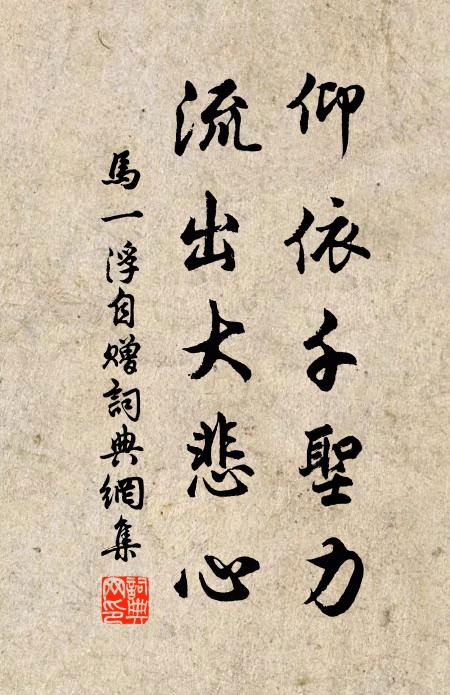 仰依千聖力
流出大悲心
馬一浮自赠詞典網集
詞典
网印